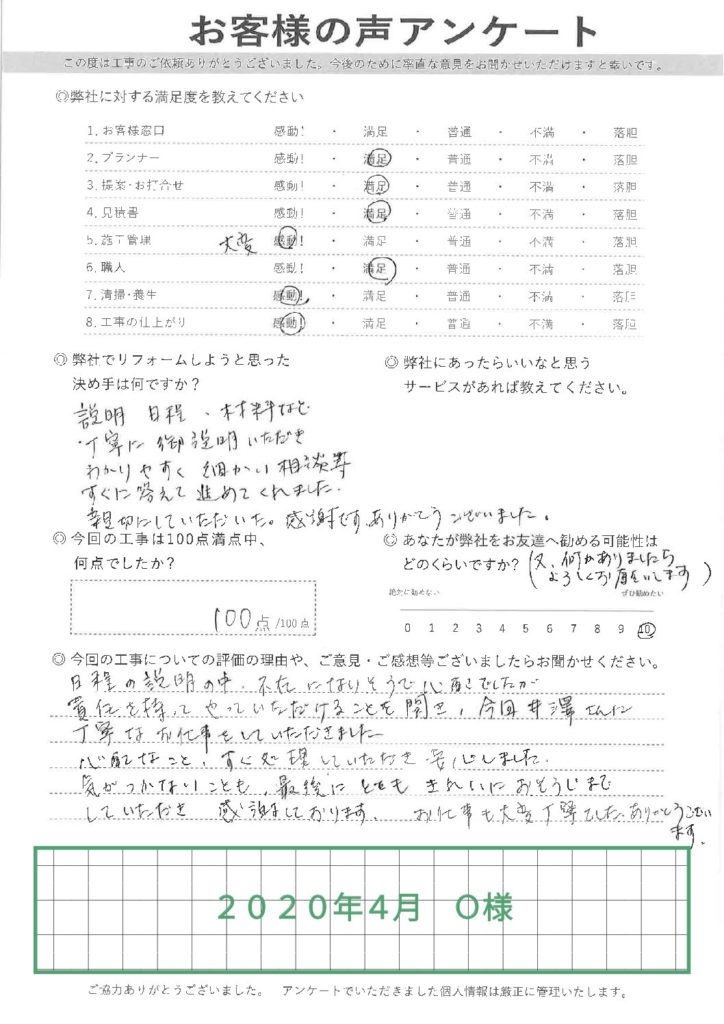 お客様の声アンケート
この度は工事のご依頼ありがとうございました。今後のために率直な意見をお聞かせいただけますと幸いです。
◎弊社に対する満足度を教えてください
1. お客様窓口 感動! ・ 満足 ・ 普通 ・ 不満 ・ 落胆
2. プランナー 感動! ・ 満足 ・ 普通 ・ 不満 ・ 落胆
3. 提案・お打合せ 感動! ・ 満足 ・ 普通 ・ 不満 ・ 落胆
4. 見積書 感動! ・ 満足 ・ 普通 ・ 不満 ・ 落胆
5. 施工管理 大変 感動! ・ 満足 ・ 普通 ・ 不満 ・ 落胆
6. 職人 感動! ・ 満足 ・ 普通 ・ 不満 ・ 落胆
7. 清掃・養生 感動! ・ 満足 ・ 普通 ・ 不満 ・ 落胆
8. 工事の仕上がり 感動! ・ 満足 ・ 普通 ・ 不満 ・ 落胆
◎ 弊社でリフォームしようと思った
決め手は何ですか？
説明 日程、材料など
丁寧に御説明いただき
わかりやすく 細かい相談等
すぐに答えて進めてくれました.
親切にしていただいた。感謝です、ありがとうございました。
◎ 弊社にあったらいいなと思う
サービスがあれば教えてください。
◎ 今回の工事は100点満点中、
何点でしたか？
100点 /100点
◎ あなたが弊社をお友達へ勧める可能性は
どのくらいですか？
(又、何かありましたら
よろしくお願いします)
絶対に勧めない ぜひ勧めたい
0 1 2 3 4 5 6 7 8 9 10
◎ 今回の工事についての評価の理由や、ご意見・ご感想等ございましたらお聞かせください。
日程の説明の中、不在になりそうで心配でしたが
責任を持ってやっていただけることを聞き、今回井澤さんに
丁寧なお仕事をしていただきました
心配なこと、すぐ処理していただき安心しました.
気がつかないことも、最後にとてもきれいにおそうじまで
していただき 感謝しております。 お仕事も大変丁寧でした、ありがとうござい
ます.
２０２０年４月　Ｏ様
ご協力ありがとうございました。 アンケートでいただきました個人情報は厳正に管理いたします。